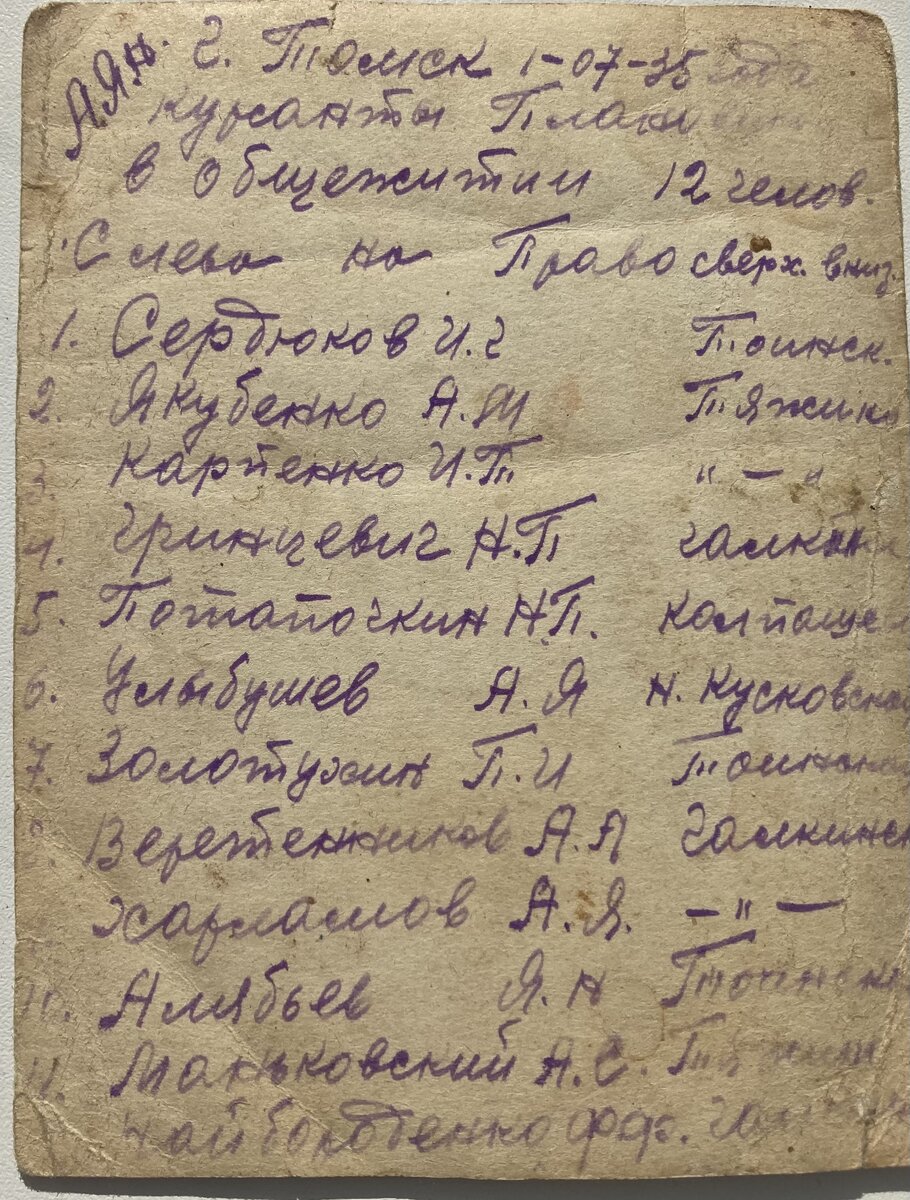 А.Я.Н. г. Томск 1-07-35 года
курсанты
в общежитии 12 челов.
Слева на Право сверх. вниз.
1. Сердюков И.Г Тоинск.
2. Якубенко А.М Тяжино
3. Карпенко И.Т " — "
4. Гринцевич Н.П
5. Потапочкин Н.П. Колпаше
6. Улыбушев А.Я Н. Кусковской
7. Золотухин П.И
8. Веретенников А.А Галкинск
Харламов А.Я. — " —
10. Алябьев Я.Н Тоинск
11. Маньковский А.С.